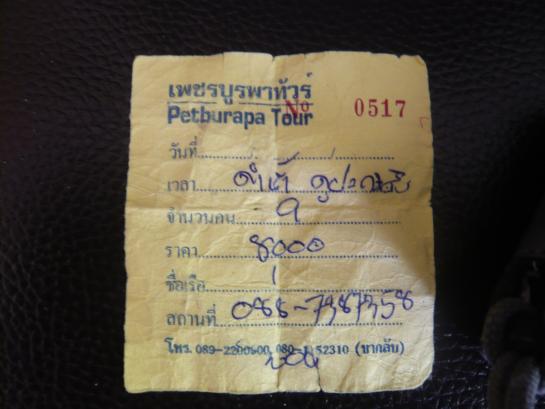 เพชรบูรพาทัวร์
Petburapa Tour
No 0517
วันที่
เวลา ดำน้ำ
จำนวนคน 9
ราคา 8000
ชื่อเรือ
สถานที่ 088-7387358
โทร. 089-2200500, 080- 52310 (ขากลับ)